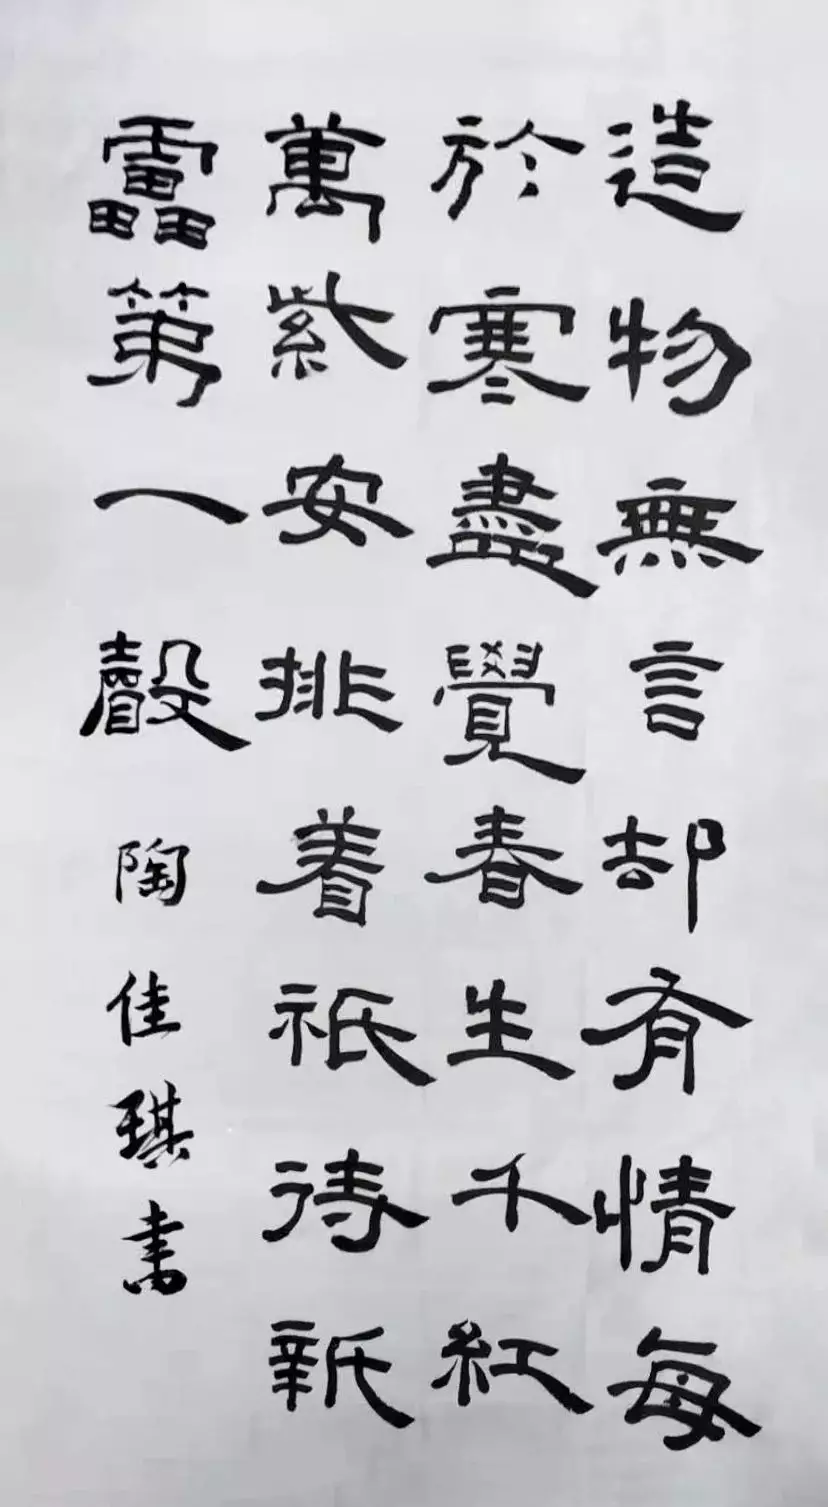 造物無言却有情每
於寒盡覺春生千紅
萬紫安排着祇待新
靁第一聲 陶佳琪書